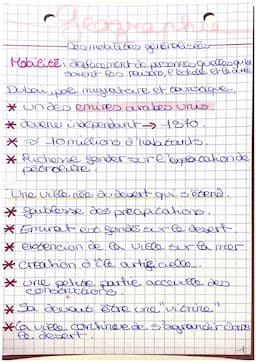 Géographie
Des mobilités généralisées
Mobilité: déplacement de personnes quelles qu'en
soient les raisons, l'échelle et la durée
Dubai, pole migratoire et touristique.
* un des emires arabes unis.
* devenu indépendant → 1970.
* ~ 10 millions d'habitants.
* Richesse fonder sur l'exploitation de
pétrolière.
Une ville née du désert qui s'étend.
* faiblesse des précipitations.
* Emirat est fondé sur le desert
* extension de la ville sur la mer
* creation d'île artificielle.
* une petite partie accueille des
constructions
* Sa devait être une "vitrine"
* La ville continue de s'agrandir dans
le desert.